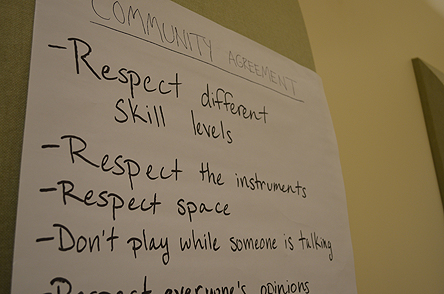 COMMUNITY AGREEMENT
-Respect different
skill levels
-Respect the instruments
-Respect space
-Don't play while someone is talking
-Respect everyone's opinions